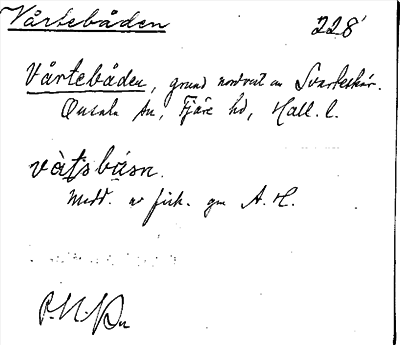 Vårtebåden 228'
Vårtebåden, grund nordväst om Svarteskär.
Onsala sn, Fjäre hd, Hall. l.
våtsbåsn.
Medd. av fisk. gm A. H.